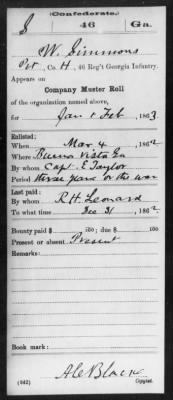 (Confederate.)
S 46 Ga.
W. Simmons
Pvt, Co. H, 46 Reg't Georgia Infantry.
Appears on
Company Muster Roll
of the organization named above,
for Jan & Feb, 1863.
Enlisted:
When Mar 4, 1862
Where Buena Vista Ga
By whom Capt. E Taylor
Period three years or the war
Last paid:
By whom R.H. Leonard
To what time Dec 31, 1862
Bounty paid $ 100; due $ 100
Present or absent Present
Remarks:
Book mark:
(642)
Copyist.